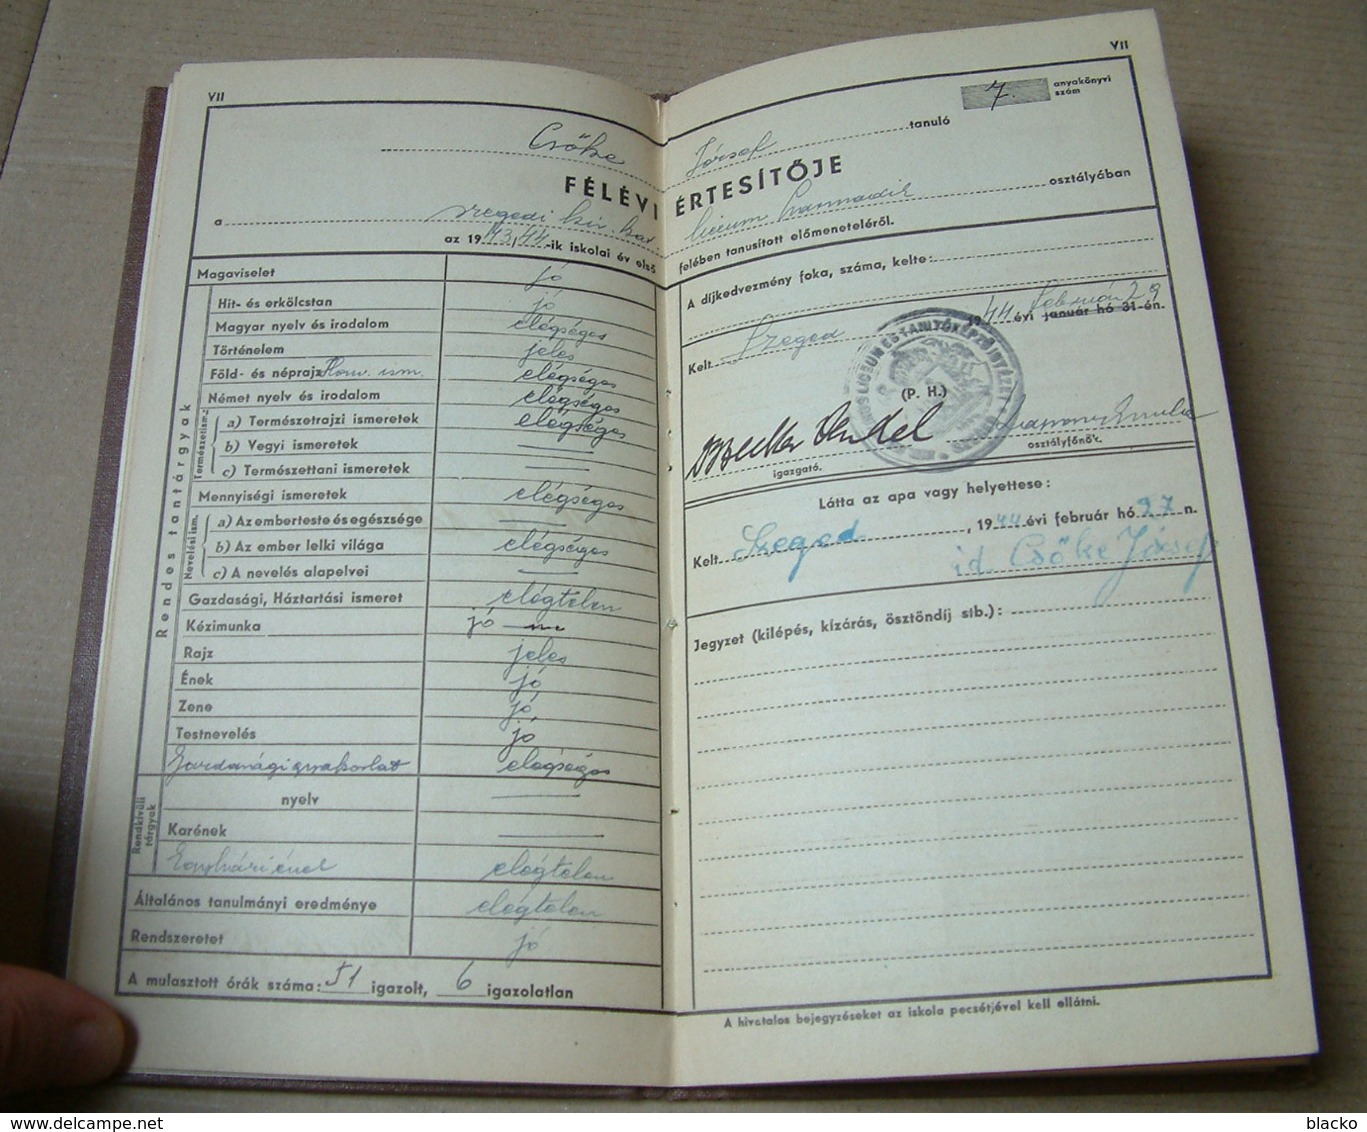 VII
Csőke
FÉLÉVI
a szegedi kir. kat.
az 1943/44-ik iskolai év első
Magaviselet jó
Rendes tantárgyak
Hit- és erkölcstan jó
Magyar nyelv és irodalom elégséges
Történelem jeles
Föld- és néprajz Hon. ism. elégséges
Német nyelv és irodalom elégséges
Természetism.:
a) Természetrajzi ismeretek elégséges
b) Vegyi ismeretek
c) Természettani ismeretek
Mennyiségi ismeretek elégséges
Nevelési ism.
a) Az emberteste és egészsége
b) Az ember lelki világa elégséges
c) A nevelés alapelvei
Gazdasági, Háztartási ismeret elégtelen
Kézimunka jó
Rajz jeles
Ének jó
Zene jó
Testnevelés jó
Gazdasági gyakorlat elégséges
Rendkívüli tárgyak
nyelv
Karének
Egyházi ének elégtelen
Általános tanulmányi eredménye elégtelen
Rendszeretet jó
A mulasztott órák száma: 51 igazolt, 6 igazolatlan
VII
7. anyakönyvi szám
József tanuló
ÉRTESÍTŐJE
líceum harmadik osztályában
felében tanusított előmeneteléről.
A díjkedvezmény foka, száma, kelte:
Kelt Szeged 1944 évi január hó 31-én. február 29
LICEUM ÉS TANITÓKÉPZŐ INTÉZET
(P. H.)
igazgató.
osztályfőnök.
Látta az apa vagy helyettese:
Kelt Szeged, 1944 évi február hó 27 n.
id. Csőke József
Jegyzet (kilépés, kizárás, ösztöndíj stb.):
A hivatalos bejegyzéseket az iskola pecsétjével kell ellátni.
www.delcampe.net
blacko